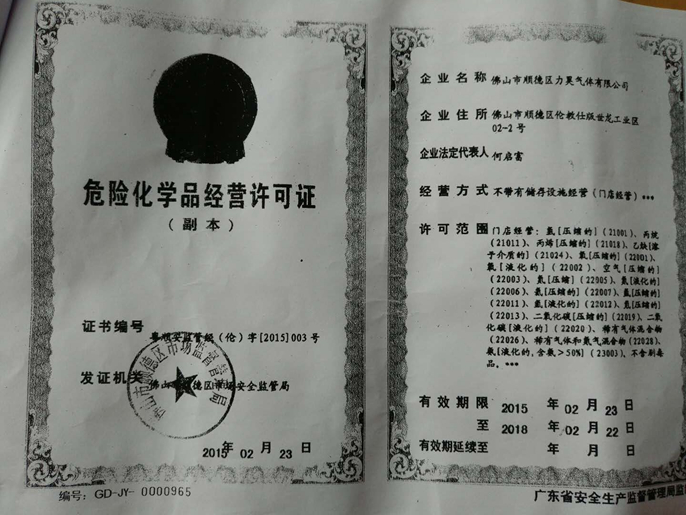 危险化学品经营许可证
(副本)
证书编号 粤顺安监管经(伦)字[2015]003号
发证机关 佛山市顺德区市场安全监管局
2015年02月23日
编号: GD-JY- 0000965
企业名称 佛山市顺德区力昊气体有限公司
企业住所 佛山市顺德区伦教仕版世龙工业区
02-2号
企业法定代表人 何启富
经营方式 不带有储存设施经营(门店经营)***
许可范围 门店经营:氢[压缩的](21001)、丙烷
(21011)、丙烯[压缩的](21018)、乙炔[溶
于介质的](21024)、氧[压缩的](22001)、
氧[液化的](22002)、空气[压缩的]
(22003)、氮[压缩](22005)、氮[液化的]
(22006)、氦[压缩的](22007)、氩[压缩的]
(22011)、氩[液化的](22012)、[压缩的]
(22013)、二氧化碳[压缩的](22019)、二氧
化碳[液化的](22020)、稀有气体混合物
(22026)、稀有气体和氮气混合物(22028)、
氨[液化的,含氨>50%](23003)、不含剧毒
品。***
有效期限 2015年02月23日
至 2018年02月22日
有效期延续至 年 月 日
广东省安全生产监督管理局监